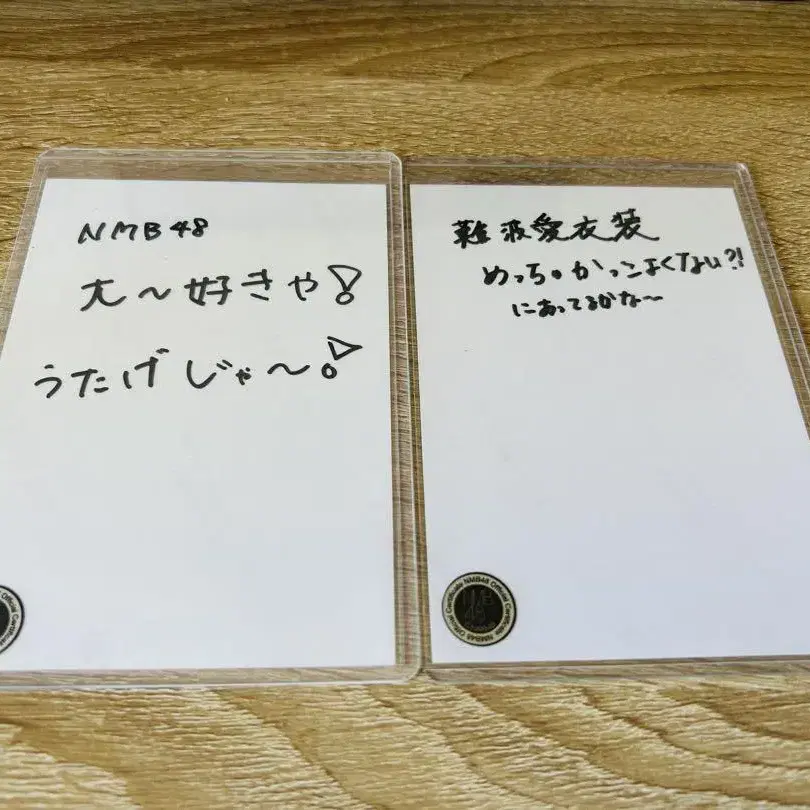 NMB48
大〜好きや!
うたげじゃ〜!
難波愛衣装
めっちゃかっこよくない?!
にあってるかな〜
NMB48 Official Certificate NMB48 Official Certificate